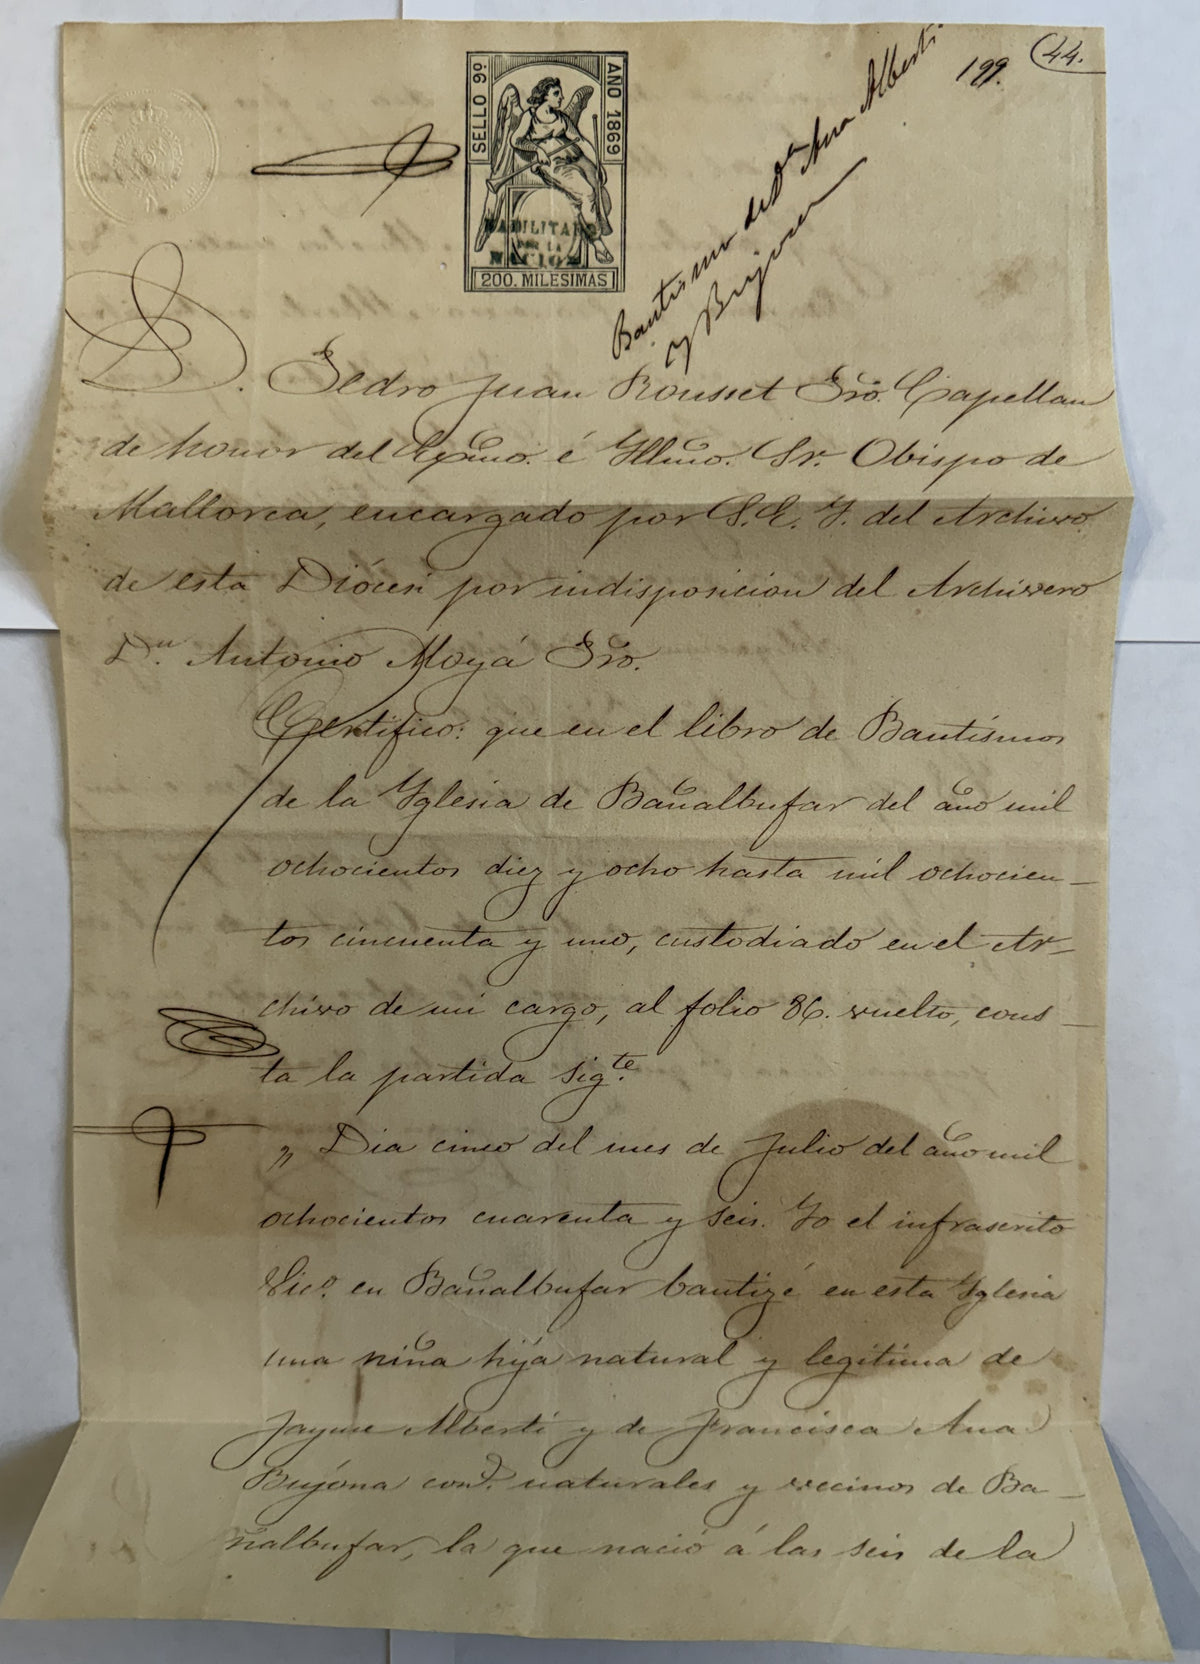 44.
199.
SELLO 9º
AÑO 1869
HABILITADO
POR LA
NACION
200. MILESIMAS
Bautismo de Dª Ana Alberti
y Bujosa
D. Pedro Juan Rousset Pro. Capellan
de honor del Excmo. é Yllmo. Sr. Obispo de
Mallorca, encargado por S. E. Y. del Archivo
de esta Diócesi por indisposicion del Archivero
Dn. Antonio Moyá Pro.
Certifico: que en el libro de Bautismos
de la Yglesia de Bañalbufar del año mil
ochocientos diez y ocho hasta mil ochocien-
tos cincuenta y uno, custodiado en el Ar-
chivo de mi cargo, al folio 86. vuelto, cons-
ta la partida sigte.
„ Dia cinco del mes de Julio del año mil
ochocientos cuarenta y seis. Yo el infrascrito
Vico. en Bañalbufar bautizé en esta Yglesia
una niña hija natural y legítima de
Jayme Alberti y de Francisca Ana
Bujosa cons. naturales y vecinos de Ba-
ñalbufar, la que nació á las seis de la